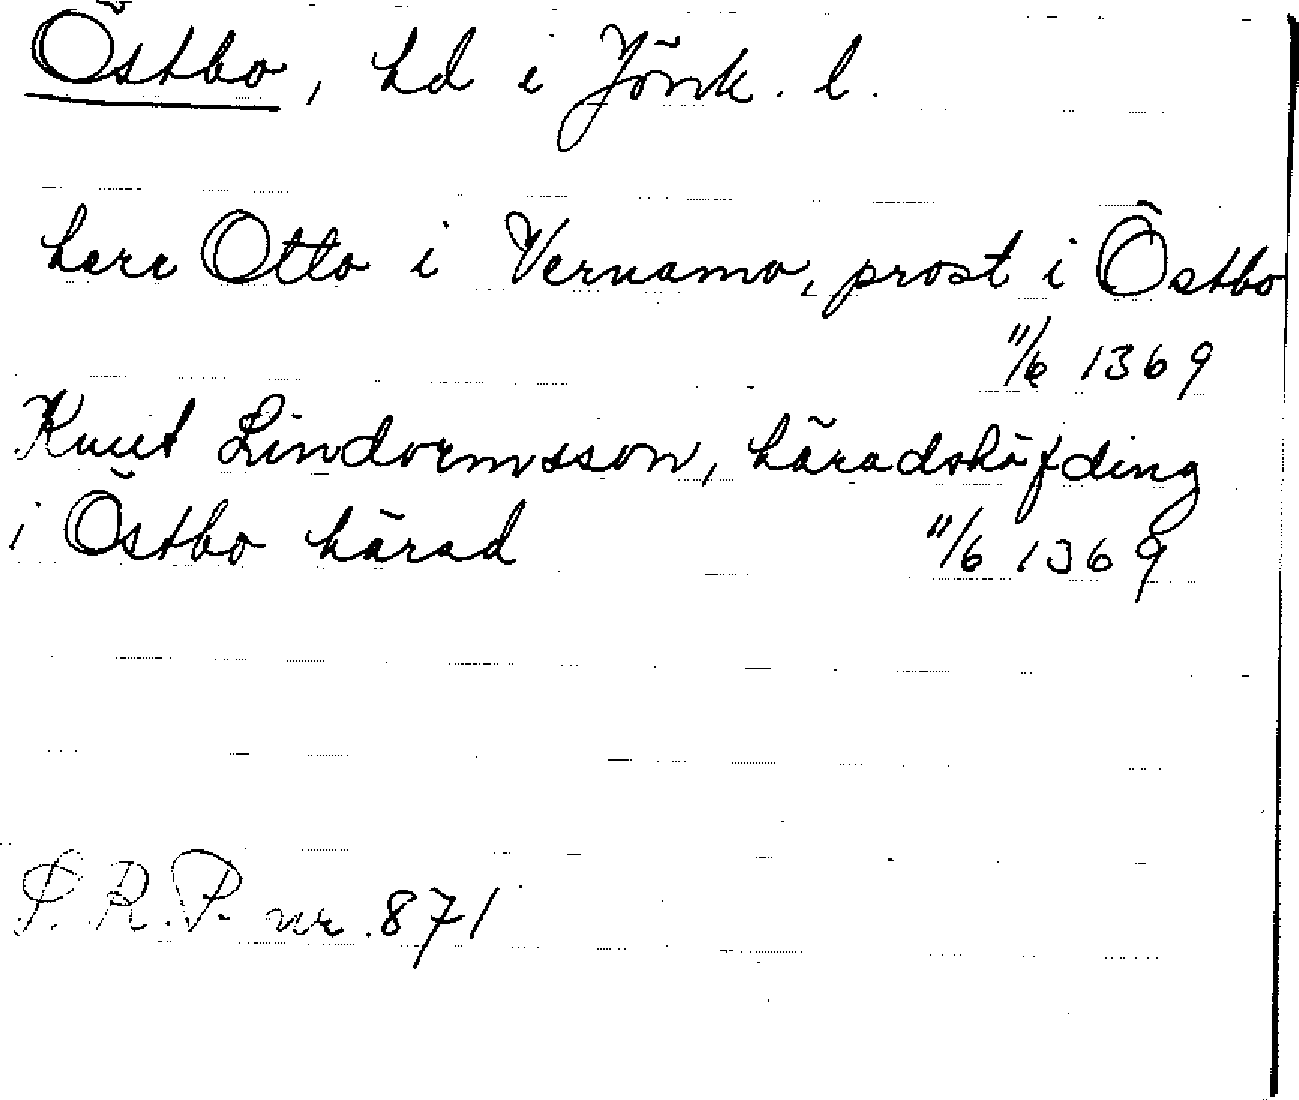 Östbo, hd i Jönk. l.
herr Otto i Vernamo, prost i Östbo
11/6 1369
Knut Lindormsson, häradshöfding
i Östbo härad 11/6 1369
S. R. P. nr. 871